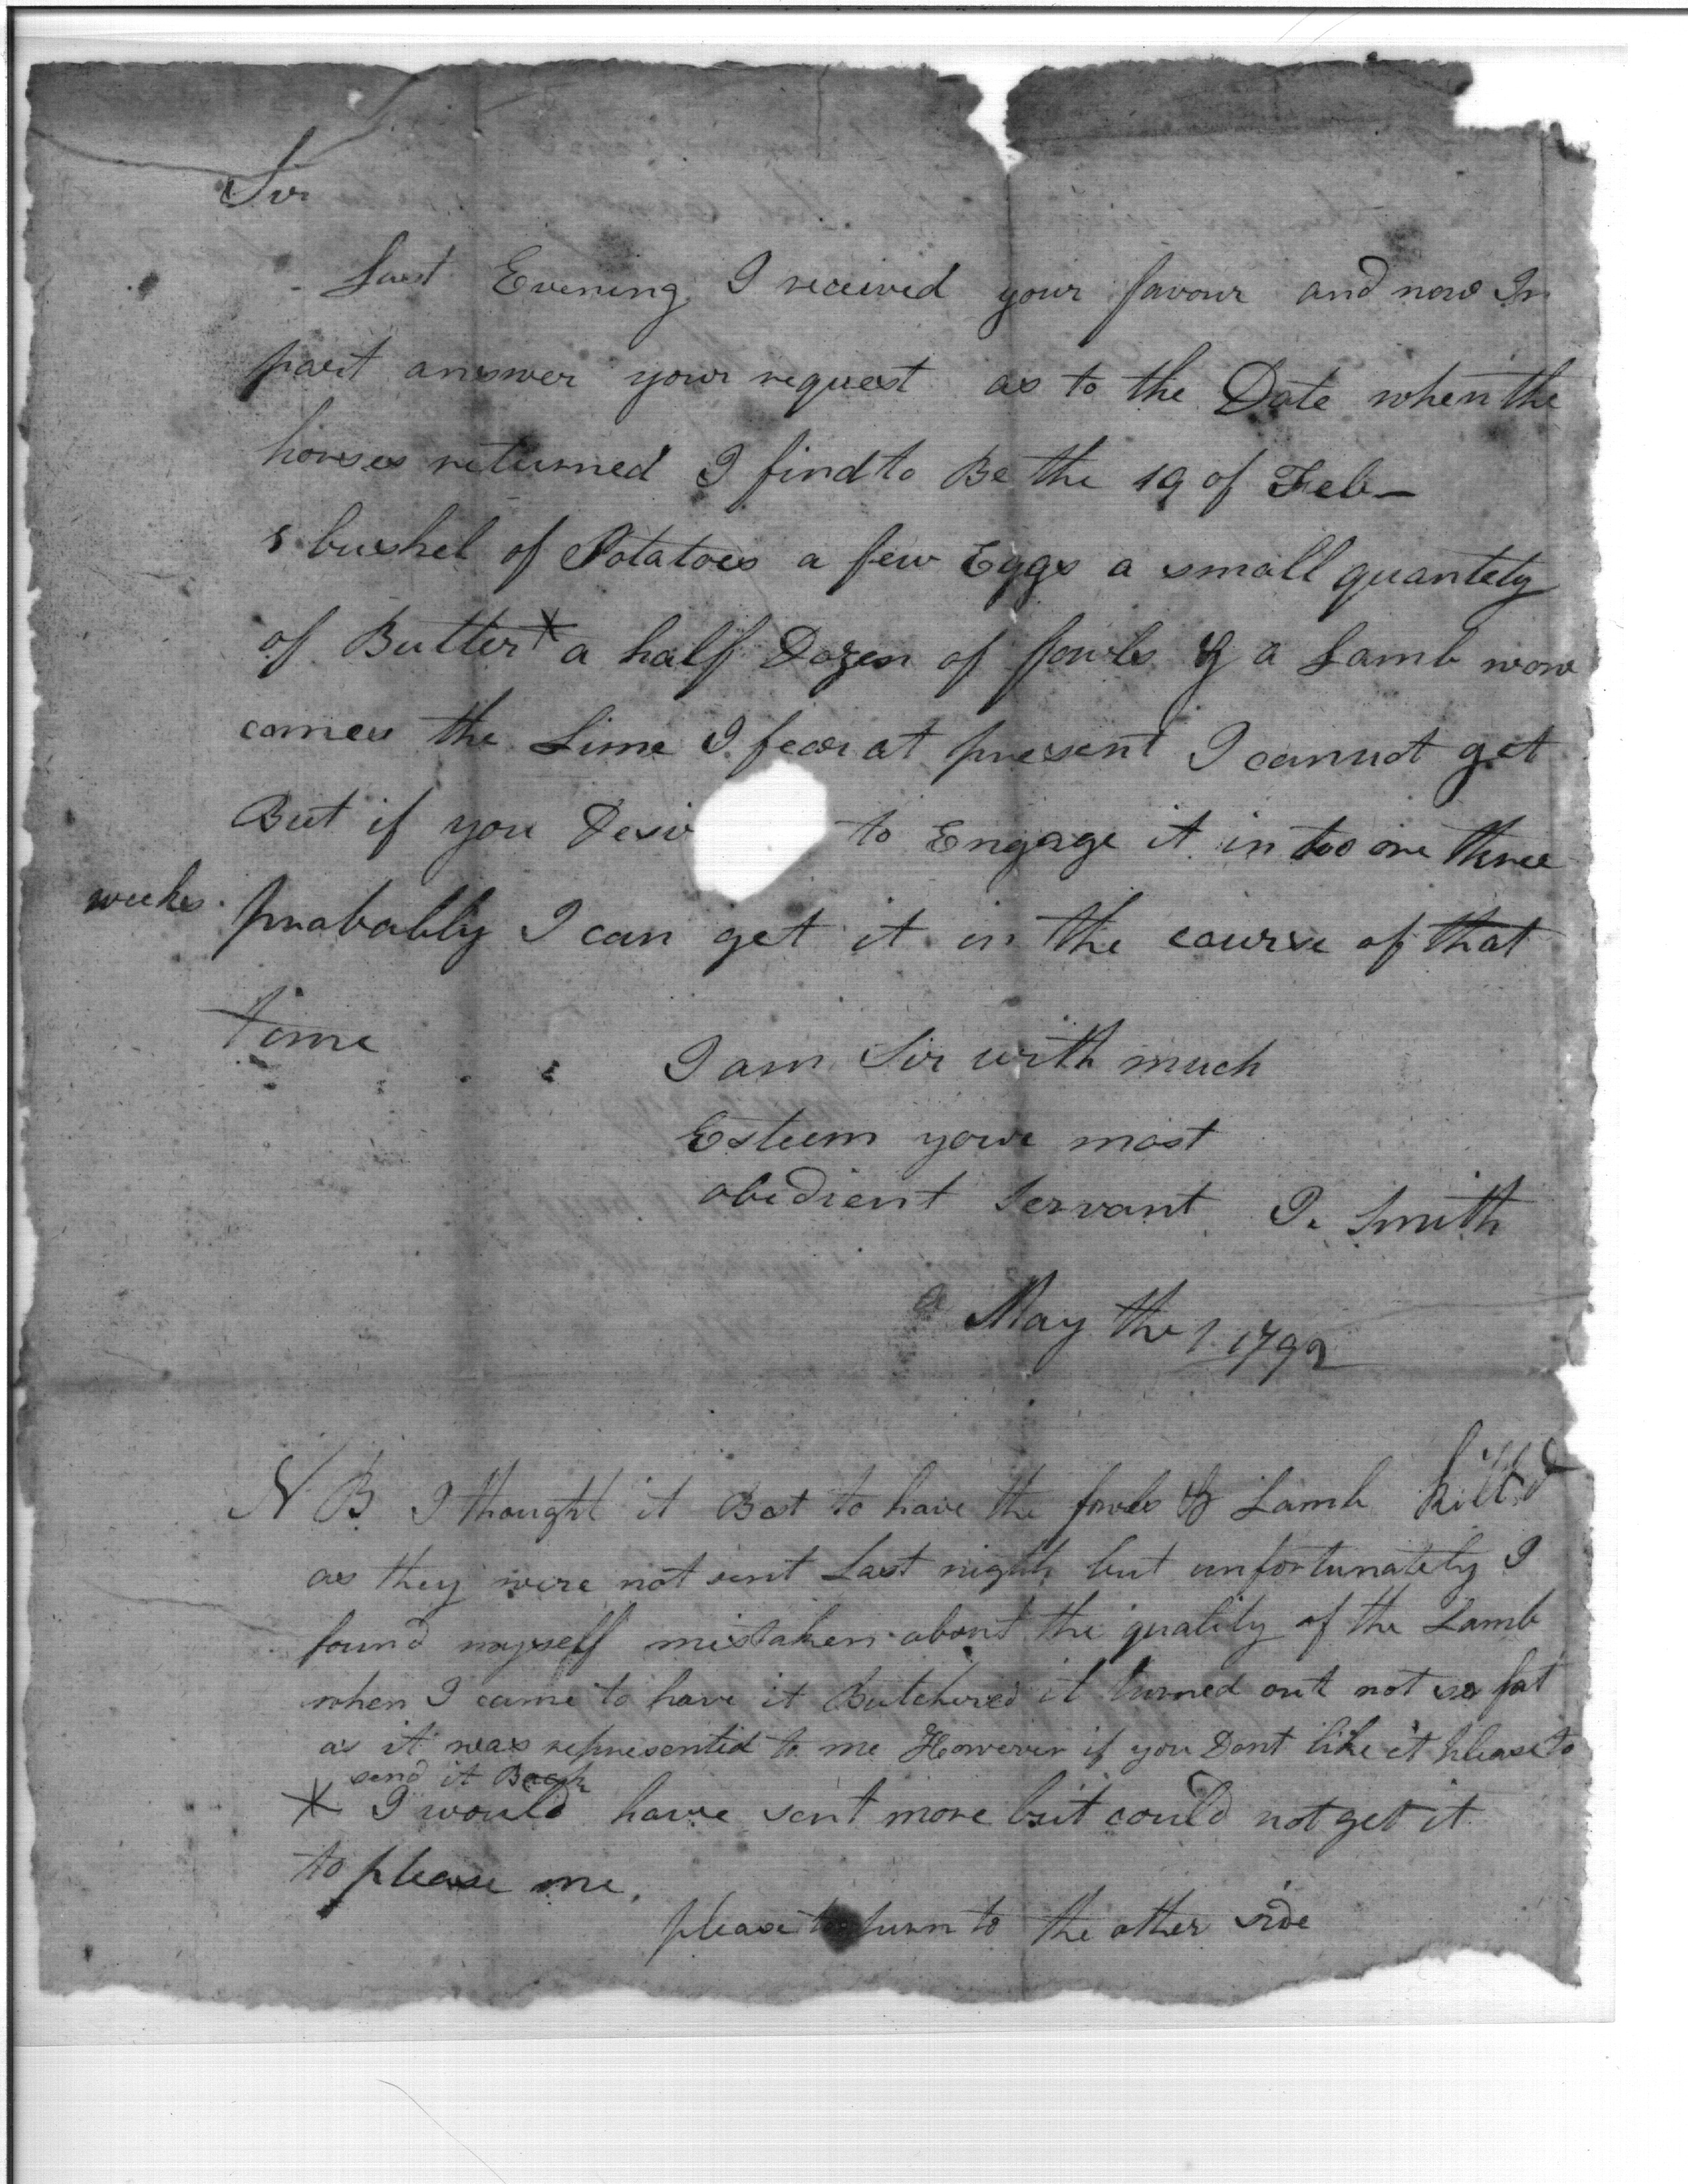 Sir
Last Evening I received your favour and now In
part answer your request as to the Date when the
horses returned I find to Be the 19 of Feb—
5 bushel of Potatoes a few Eggs a small quantety
of Butter* a half Dozen of fowls & a Lamb now
comes the Lime I fear at present I cannot get
But if you Desi to Engage it in too or three
weeks probably I can get it in the course of that
time
I am Sir with much
Esteem your most
obedient Servant I. Smith
May the 1 1792
N B I thought it Best to have the fowls & Lamb kill'd
as they were not sent Last night but unfortunately I
found myself mistaken about the quality of the Lamb
when I came to have it Butchered it turned out not so fat
as it was represented to me However if you Dont like it please to
send it Back
* I would have sent more but could not get it
to please me.
please to turn to the other side